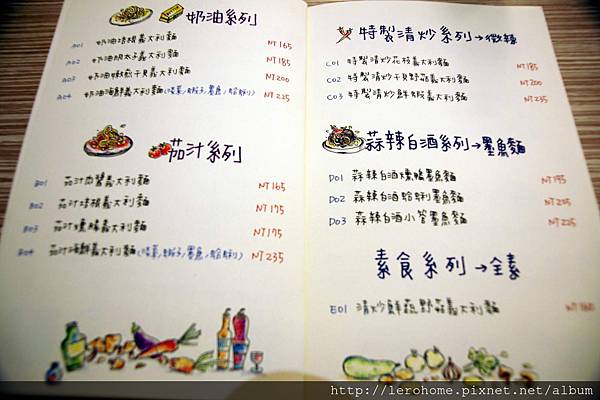 奶油系列
A01 奶油培根義大利麵 NT165
A02 奶油明太子義大利麵 NT185
A03 奶油嫩煎干貝義大利麵 NT200
A04 奶油海鮮義大利麵(淡菜/蝦子/墨魚/蛤蜊) NT235
茄汁系列
B01 茄汁肉醬義大利麵 NT165
B02 茄汁培根義大利麵 NT175
B03 茄汁燻鴨義大利麵 NT175
B04 茄汁海鮮義大利麵(淡菜/蝦子/墨魚/蛤蜊) NT235
特製清炒系列→微辣
C01 特製清炒花枝義大利麵 NT185
C02 特製清炒干貝野菇義大利麵 NT200
C03 特製清炒鮮蝦義大利麵 NT235
蒜辣白酒系列→墨魚麵
D01 蒜辣白酒燻鴨墨魚麵 NT195
D02 蒜辣白酒蛤蜊墨魚麵 NT225
D03 蒜辣白酒小管墨魚麵 NT225
素食系列→全素
E01 清炒鮮蔬野菇義大利麵 NT160
http://lerohome.pixnet.net/album